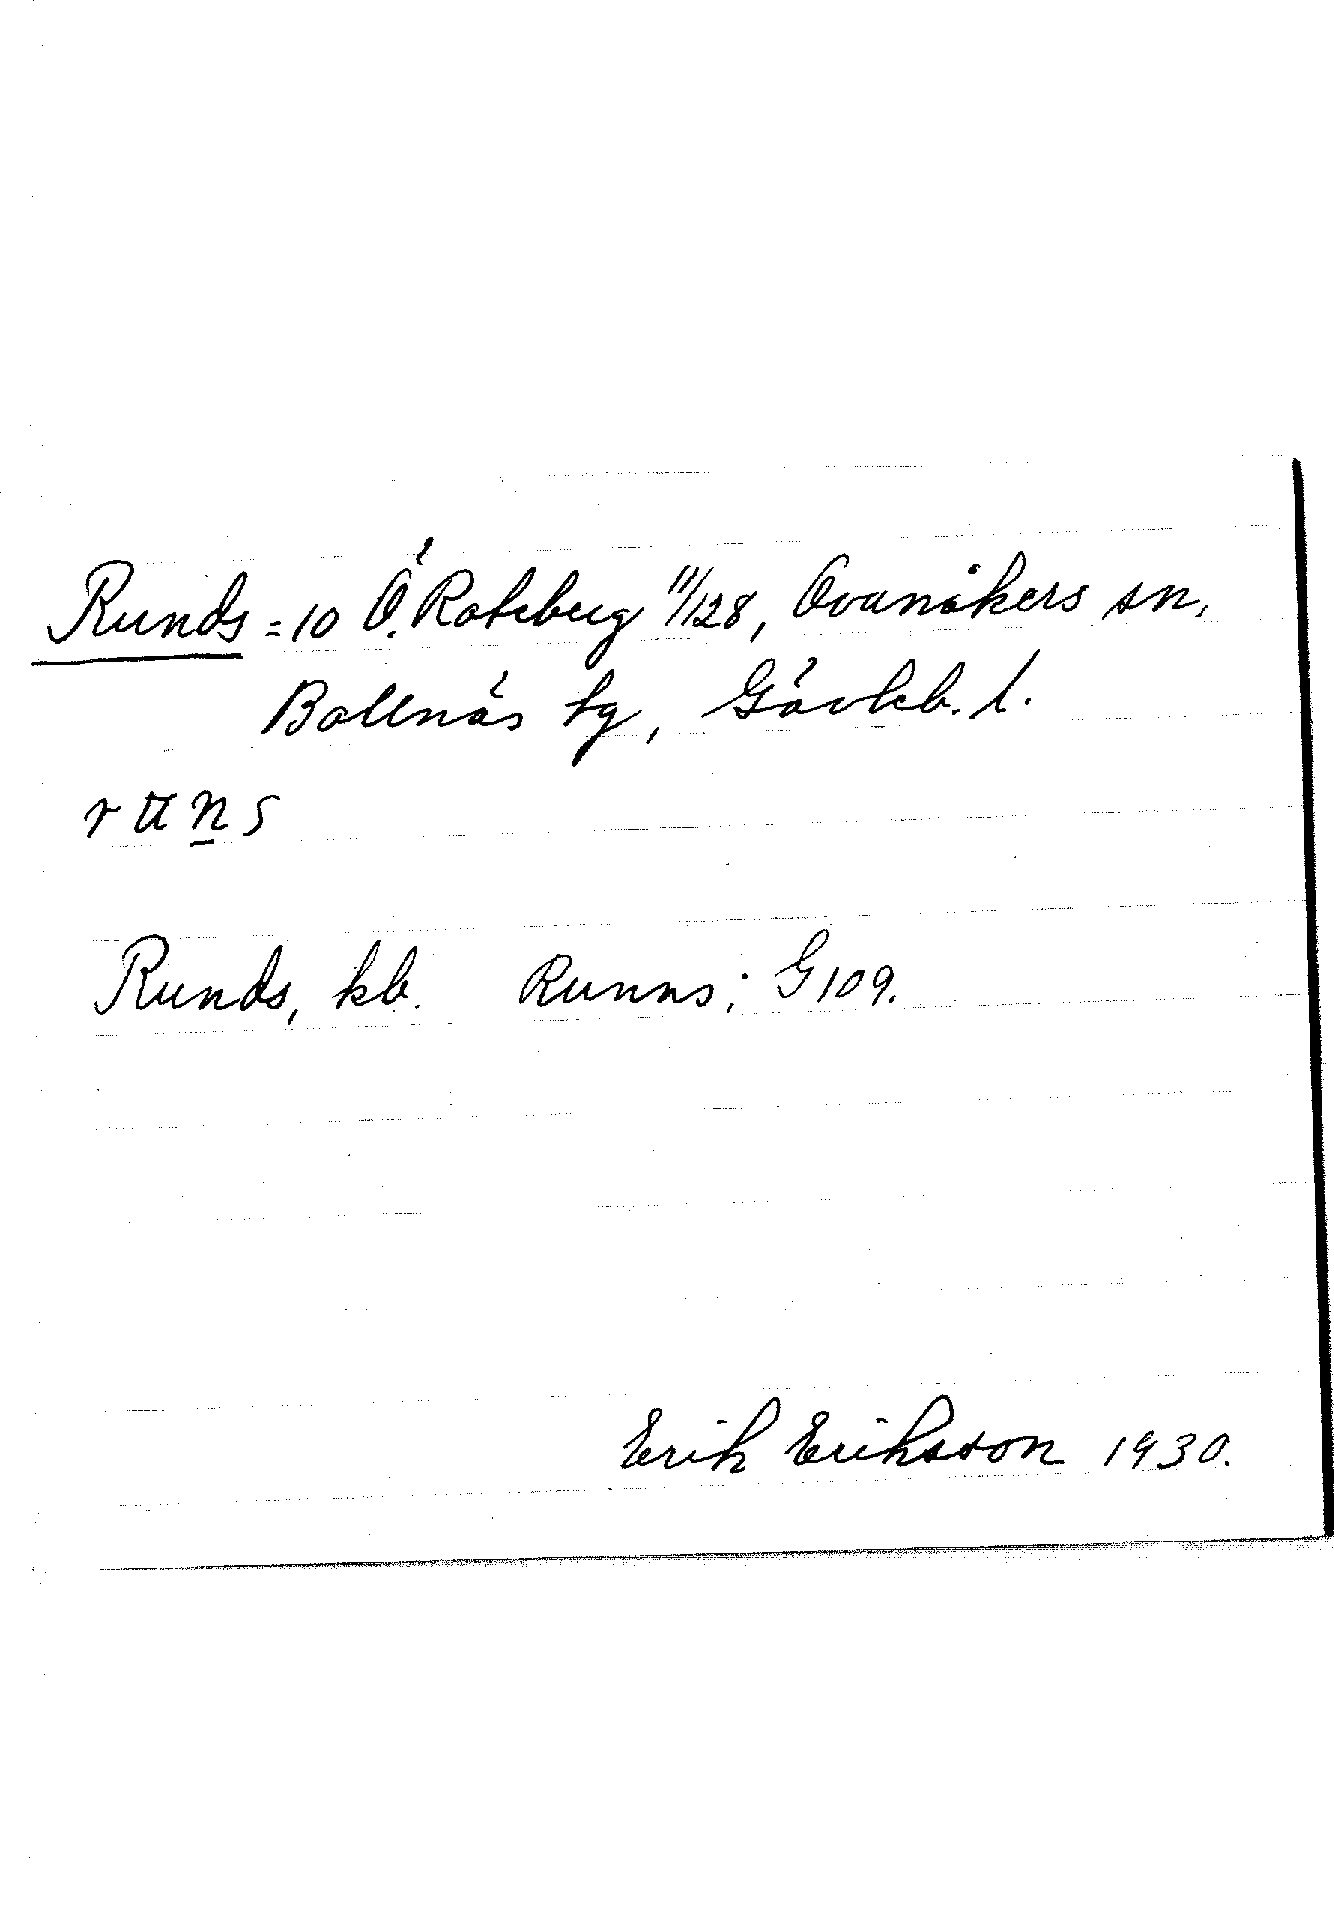 Runds = 10 Ö. Roteberg 11/128, Ovanåkers sn,
Bollnäs tg, Gävleb. l.
Runds, kb. Runns; G 109.
Erik Eriksson 1930.